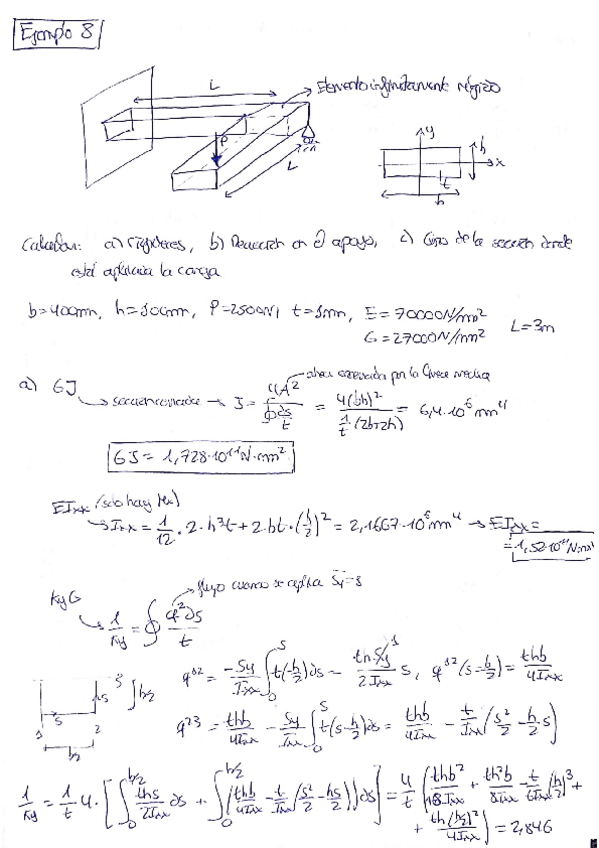 Ejemplo 8
L
Elemento infinitamente rígido
P
L
y
h
x
t
b
Calcular: a) rigideces, b) Reacción en el apoyo, c) Giro de la sección donde
está aplicada la carga
b=400mm, h=100mm, P=2500N, t=1mm, E = 70000N/mm²
G = 27000N/mm²
L=3m
a) GJ
área encerrada por la línea media
sección cerrada → J = 4A² / ∮ds/t = 4(bh)² / (1/t (2b+2h)) = 6,4·10⁶ mm⁴
GJ = 1,728·10¹¹ N·mm²
EIxx (solo hay Mx)
→ Ixx = 1/12 · 2·h³t + 2·bt·(h/2)² = 2,1667·10⁶ mm⁴ → EIxx =
= 1,52·10¹¹ N·mm²
Ky G
flujo cuando se aplica Sy=1
1/Ky = ∮ q²ds/t
q¹² = -Sy/Ixx ∫₀ˢ t(-h/2)ds = thSy/2Ixx s, q¹²(s=b/2) = thb/4Ixx
3
h/2
s
s
1
2
b/2
q²³ = thb/4Ixx - Sy/Ixx ∫₀ˢ t(s-h/2)ds = thb/4Ixx - t/Ixx (s²/2 - h/2 s)
1/Ky = 1/t 4·[∫₀^(b/2) ths/2Ixx ds + ∫₀^(h/2) (thb/4Ixx - t/Ixx (s²/2 - hs/2)) ds] = 4/t (thb²/18Ixx + th²b/8Ixx - t/6Ixx (h/2)³ +
+ th(h/2)²/4Ixx) = 2,846